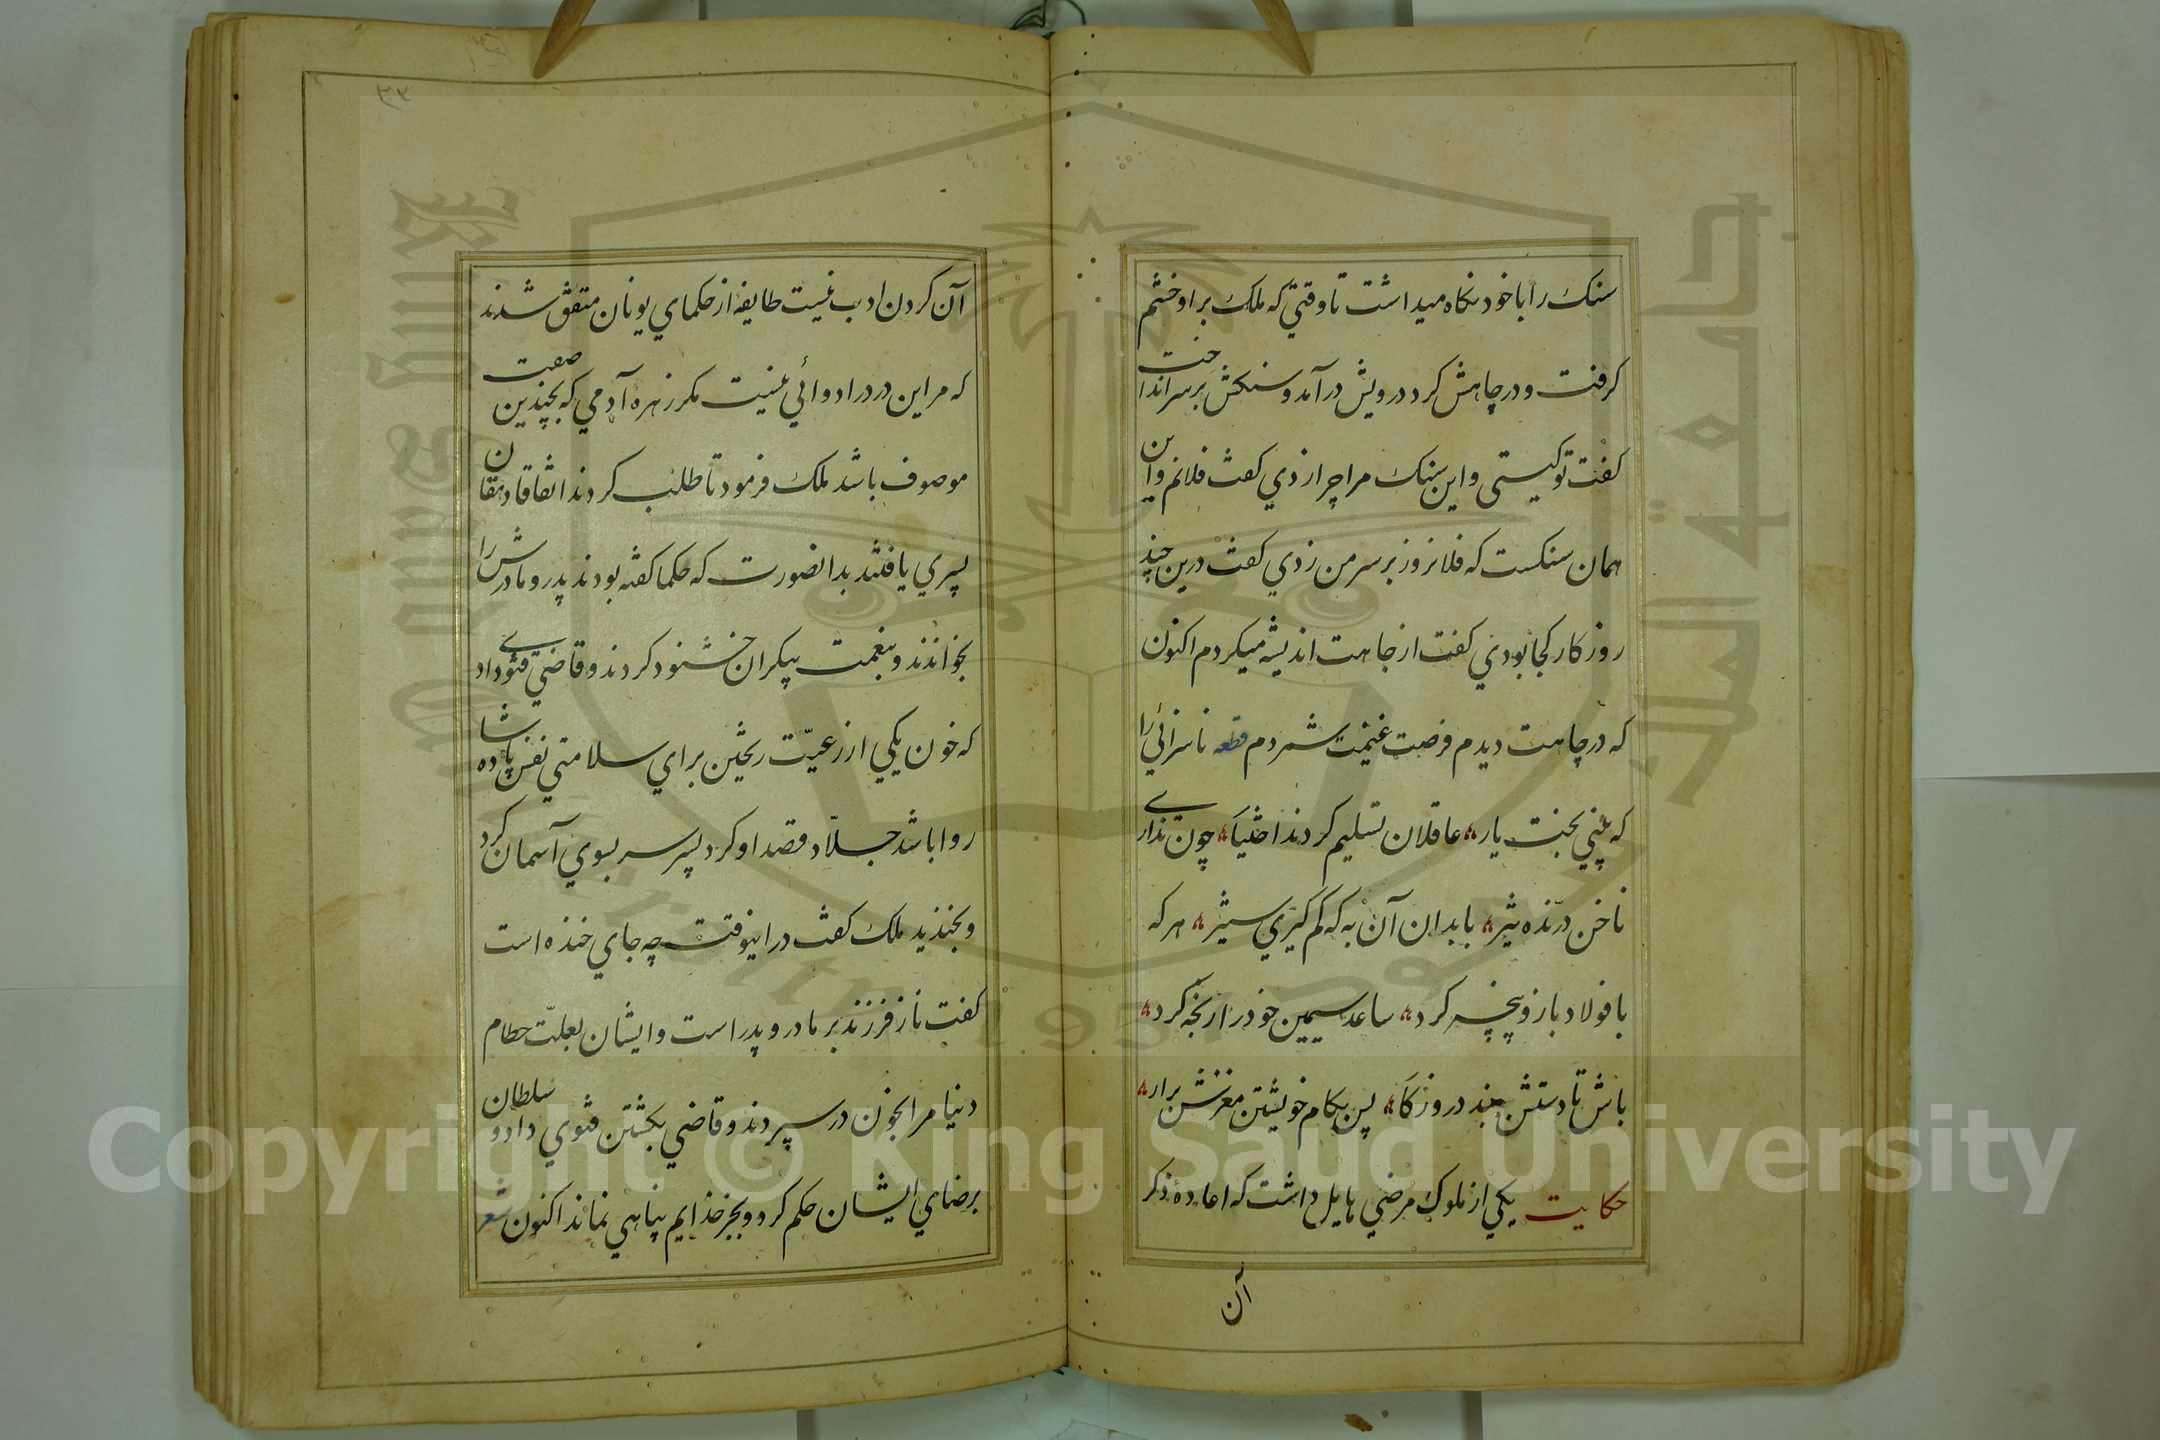 سنك را با خود نكاه ميداشت تا وقتي كه ملك براو خشم
كرفت و در چاهش كرد درويش در آمد و سنكش بر سر انداخت
كفت تو كيستي و اين سنك مرا چرا زدي كفت فلانم و اين
همان سنكست كه فلانروز بر سر من زدي كفت درين چند
روزكار كجا بودي كفت از جاهت انديشه ميكردم اكنون
كه در چاهت ديدم فرصت غنيمت شمردم قطعه ناسزائي را
كه بيني بخت يار عاقلان تسليم كردند اختيار چون نداري
ناخن درنده تيز با بدان آن به كه كم كيري ستيز هر كه
با فولاد بازو پنجه كرد ساعد سيمين خود را رنجه كرد
باش تا دستش ببندد روزكار پس بكام خويشتن مغزش برار
حكايت يكي از ملوك مرضي هايل داشت كه اعاده ذكر
آن
۳۳
آن كردن ادب نيست طايفه از حكماي يونان متفق شدند
كه مر اين درد را دوائي نيست مكر زهره آدمي كه بچندين صفت
موصوف باشد ملك فرمود تا طلب كردند اتفاقا دهقان
پسري يافتند بدانصورت كه حكما كفته بودند پدر و مادرش را
بخواندند و بنعمت بيكران خشنود كردند و قاضي فتوي داد
كه خون يكي از رعيّت ريختن براي سلامتي نفس پادشاه
روا باشد جلّاد قصد او كرد پسر سر بسوي آسمان كرد
و بخنديد ملك كفت در اينوقت چه جاي خنده است
كفت ناز فرزند بر مادر و پدر است و ايشان بعلّت حطام
دنيا مرا بخون در سپردند و قاضي بكشتن فتوي داد و سلطان
برضاي ايشان حكم كرد و بجز خدايم پناهي نماند اكنون شعر
جامعة الملك سعود
King Saud University
1957
Copyright © King Saud University